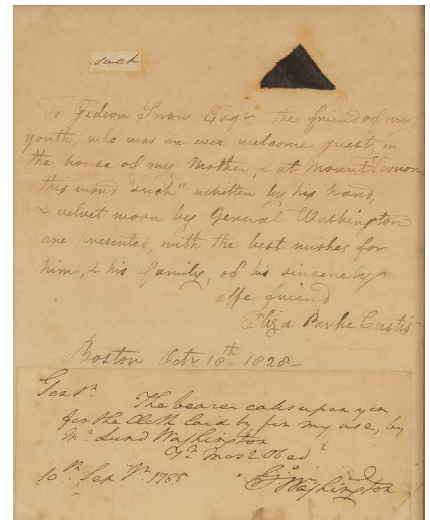 such
To Gideon Snow Esqr the friend of my
youth, who was an ever welcome guest, in
the house of my Mother, & at Mount Vernon
this word "such" written by his hand,
& velvet worn by General Washington
are presented, with the best wishes for
him, & his family, of his sincerely
affe friend
Eliza Parke Custis
Boston Octr 18th 1828
Gentn.
The bearer calls upon you
for the Cloth laid by for my use, by
Mr. Lund Washington
Yr. Most Obed
10th. Sepr. 1785
Go Washington